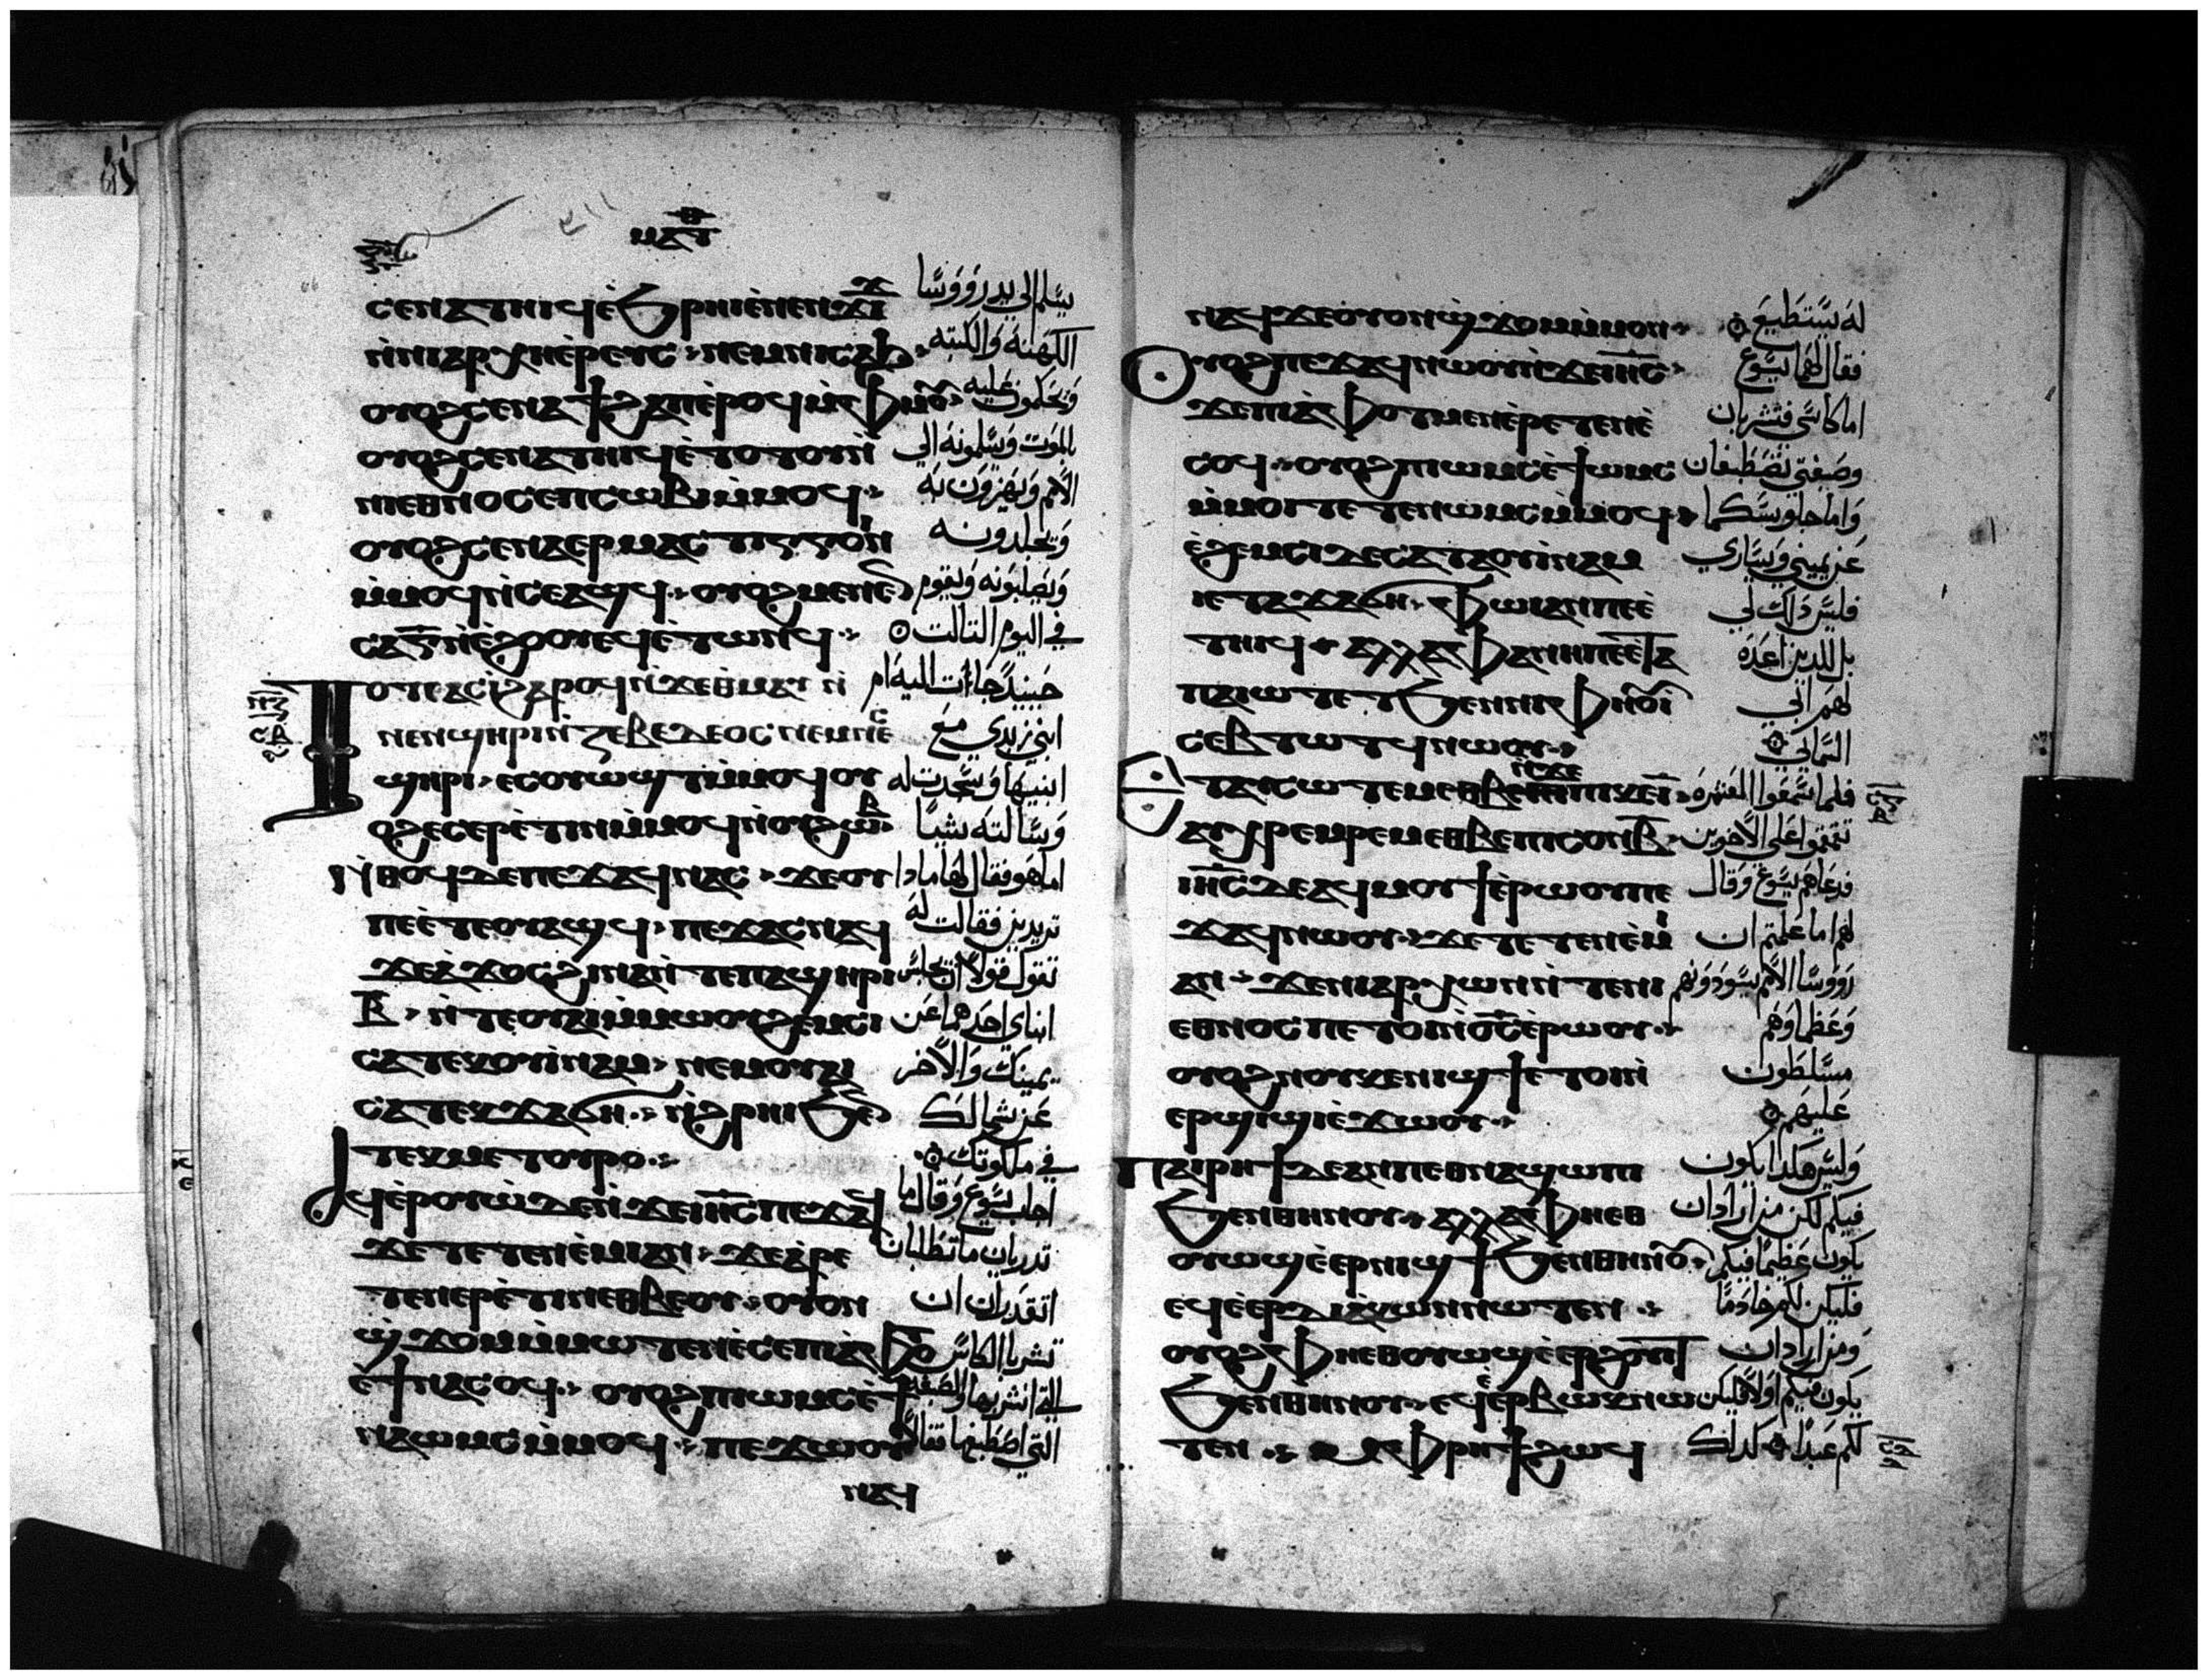 ⲙⲁⲧ
ⲥⲉⲛⲁⲧⲏⲓϥ ⲉ̀ϧⲣⲏⲓ ⲉ̀ⲛⲉⲛϫⲓϫ يسلم الي يد رووسا
ⲛ̀ⲛⲓⲁⲣⲭⲏⲉ̀ⲣⲉⲩⲥ ⲛⲉⲙⲛⲓⲥⲁϧ الكهنة والكتبه
ⲟⲩⲟϩ ⲥⲉⲛⲁϯϩⲁⲡ ⲉ̀ⲣⲟϥ ⲙ̀ⲫⲙⲟⲩ ويحكمون عليه
ⲟⲩⲟϩ ⲥⲉⲛⲁⲧⲏⲓϥ ⲉ̀ⲧⲟⲧⲟⲩⲛ̀ بالموت ويسلمونه الي
ⲛⲓⲉⲑⲛⲟⲥ ⲉⲡⲥⲱⲃⲓ ⲙ̀ⲙⲟϥ الامم ويهزون به
ⲟⲩⲟϩ ⲥⲉⲛⲁⲉⲣⲙⲁⲥⲧⲓⲅⲅⲟⲓⲛ ويجلدونه
ⲙ̀ⲙⲟϥ ⲛ̀ⲥⲉⲁϣϥ ⲟⲩⲟϩ ⲙⲉⲛⲉⲛ ويصلبونه ويقوم
ⲥⲁ ⲅ̅ ⲛ̀ⲉ̀ϩⲟⲟⲩ ⲉϥⲉ̀ⲧⲱⲛϥ في اليوم الثالث
ⲧⲟⲧⲉ ⲁⲥⲓ̀ ϩⲁⲣⲟϥ ⲛ̀ϫⲉⲑⲙⲁⲩ ⲛ̀ حينيد جاات اليه ام
ⲛⲉⲛϣⲏⲣⲓ ⲛ̀ⲍⲉⲃⲉⲇⲉⲟⲥ ⲛⲉⲙⲛⲉⲥ ابني زبدي مع
ϣⲏⲣⲓ ⲉⲥⲟⲩⲱϣⲧ ⲙ̀ⲙⲟϥ ⲟⲩ ابنيها وسجدت له
ⲟϩ ⲉⲥⲉⲣⲉ̀ⲧⲓⲛ ⲙ̀ⲙⲟϥ ⲛ̀ⲟⲩϩⲱⲃ وسالته شيا
ⲛ̀ⲑⲟϥ ⲇⲉ ⲡⲉϫⲁϥ ⲛⲁⲥ ϫⲉⲟⲩ اما هو فقال لها ماذا
ⲡⲉ ⲉ̀ⲧⲉⲟⲩⲁϣϥ ⲡⲉϫⲁⲥ ⲛⲁϥ تريدين فقالت له
ϫⲉⲁ̀ϫⲟⲥ ϩⲓⲛⲁ ⲛ̀ⲧⲉⲡⲁϣⲏⲣⲓ تقول قولا ان يجلس
ⲃ̅ ⲛ̀ⲧⲉⲟⲩⲁⲓ ⲙ̀ⲙⲱⲟⲩ ϩⲉⲙⲥⲓ ابناي احدهما عن
ⲥⲁⲧⲉⲕⲟⲩⲓ̀ⲛⲁⲙ ⲛⲉⲙⲟⲩⲁⲓ يمينك والاخر
ⲥⲁⲧⲉⲕϫⲁϭⲏ ⲛ̀ϩⲣⲏⲓ ϧⲉⲛ عن شمالك
ⲧⲉⲕⲙⲉⲧⲟⲩⲣⲟ في ملكوتك
ⲁϥⲉ̀ⲣⲟⲩⲱ̀ ⲇⲉ ⲛ̀ϫⲉⲓⲏ̅ⲥ̅ ⲡⲉϫⲁϥ اجاب يسوع وقال ما
ϫⲉⲧⲉⲧⲉⲛⲉ̀ⲙⲓ ⲁⲛ ϫⲉⲁ̀ⲣⲉ تدريان ما تطلبان
ⲧⲉⲛⲉⲣⲉ̀ⲧⲓⲛ ⲉⲑⲃⲉⲟⲩ ⲟⲩⲟⲛ اتقدران ان
ϣ̀ϫⲟⲙ ⲙ̀ⲙⲱⲧⲉⲛ ⲉ̀ⲥⲉⲡⲓⲁ̀ⲫⲟⲧ تشربا الكاس
ⲉ̀ϯⲛⲁⲥⲟϥ ⲟⲩⲟϩ ⲡⲓⲱⲙⲥ ⲉ̀ϯ التي انشربها والصبغه
ⲛⲁⲱⲙⲥ ⲙ̀ⲙⲟϥ ⲡⲉϫⲱⲟⲩ التي اصطبغها فقالا
ⲛⲁϥ
ⲛⲁϥ ϫⲉⲟⲩⲟⲛ ϣ̀ϫⲟⲙ ⲙ̀ⲙⲟⲛ له نستطيع
ⲟⲩⲟϩ ⲡⲉϫⲁϥ ⲛⲱⲟⲩ ⲛ̀ϫⲉⲓⲏ̅ⲥ̅ فقال لهما يسوع
ϫⲉⲡⲓⲁ̀ⲫⲟⲧ ⲙⲉⲛ ⲉ̀ⲣⲉⲧⲉⲛⲉ̀ اما كاسي فتشربان
ⲥⲟϥ ⲟⲩⲟϩ ⲡⲓⲱⲙⲥ ⲉ̀ϯⲱⲙⲥ وصبغتي تصطبغان
ⲙ̀ⲙⲟϥ ⲧⲉⲧⲉⲛⲱⲙⲥ ⲙ̀ⲙⲟϥ واما جلوسكما
ⲉ̀ϩⲉⲙⲥⲓ ⲇⲉ ⲥⲁⲧⲁⲟⲩⲓ̀ⲛⲁⲙ عن يميني ويساري
ⲓⲉ ⲧⲁϫⲁϭⲏ ⲫⲱⲓ ⲁⲛ ⲡⲉ ⲉ̀ فليس ذلك لي
ⲧⲏⲓϥ ⲁⲗⲗⲁ ⲫⲁⲛⲏ ⲡⲉ ⲉ̀ⲧⲁ بل للدين اعده
ⲡⲁⲓⲱⲧ ⲉⲧϧⲉⲛⲛⲓⲫⲏⲟⲩⲓ̀ لهم ابي
ⲥⲉⲃⲧⲱⲧϥ ⲛⲱⲟⲩ السماني
ⲉⲧⲁⲩⲥⲱⲧⲉⲙ ⲉⲑⲃⲉ ⲛ̀ϫⲉ ⲡⲓⲕⲉⲓ̅ فلما سمعوا العشره
ⲁⲩⲭⲣⲉⲙⲣⲉⲙ ⲉⲑⲃⲉⲡⲓⲥⲟⲛ ⲃ̅ تقمقموا علي الاخوين
ⲓⲏ̅ⲥ̅ ⲇⲉ ⲁϥⲙⲟⲩϯ ⲉ̀ⲣⲱⲟⲩ ⲡⲉ فدعاهم يسوع وقال
ϫⲁϥ ⲛⲱⲟⲩ ϫⲉⲧⲉⲧⲉⲛⲉ̀ⲙⲓ لهم اما علمتم ان
ⲁⲛ ϫⲉⲛⲓⲁⲣⲭⲱⲛ ⲛ̀ⲧⲉⲛⲓ رووسا الامم يسودونهم
ⲉⲑⲛⲟⲥ ⲡⲉⲧⲟⲓ ⲛ̀ⲟ̅ⲥ̅ ⲉ̀ⲣⲱⲟⲩ وعظماوهم
ⲟⲩⲟϩ ⲛⲟⲩⲕⲉⲛⲓϣϯ ⲉⲧⲟⲓ ⲛ̀ مسلطون
ⲉⲣϣⲓϣⲓ ⲉ̀ϫⲱⲟⲩ عليهم
ⲡⲁⲓⲣⲏϯ ⲇⲉ ⲁⲛ ⲡⲉⲑⲛⲁϣⲱⲡⲓ وليس هكدا يكون
ϧⲉⲛⲑⲏⲛⲟⲩ ⲁⲗⲗⲁ ⲫⲏⲉⲑ فيكم لكن من اراد ان
ⲟⲩⲱϣ ⲉ̀ⲉⲣⲛⲓϣϯ ϧⲉⲛⲑⲏⲛⲟⲩ يكون عظيما فيكم
ⲉϥⲉ̀ⲉⲣⲇⲓⲁ̀ⲕⲱⲛ ⲛⲱⲧⲉⲛ فليكن لكم خادما
ⲟⲩⲟϩ ⲫⲏⲉⲑⲟⲩⲱϣ ⲉ̀ⲉⲣϩⲟⲩⲓⲧ ومن اراد ان
ϧⲉⲛⲑⲏⲛⲟⲩ ⲉϥⲉ̀ⲉⲣⲃⲱⲕ ⲛⲱ يكون فيكم اولا فليكن
ⲧⲉⲛ ⲙ̀ⲫⲣⲏϯ ϩⲱϥ لكم عبدا كداك